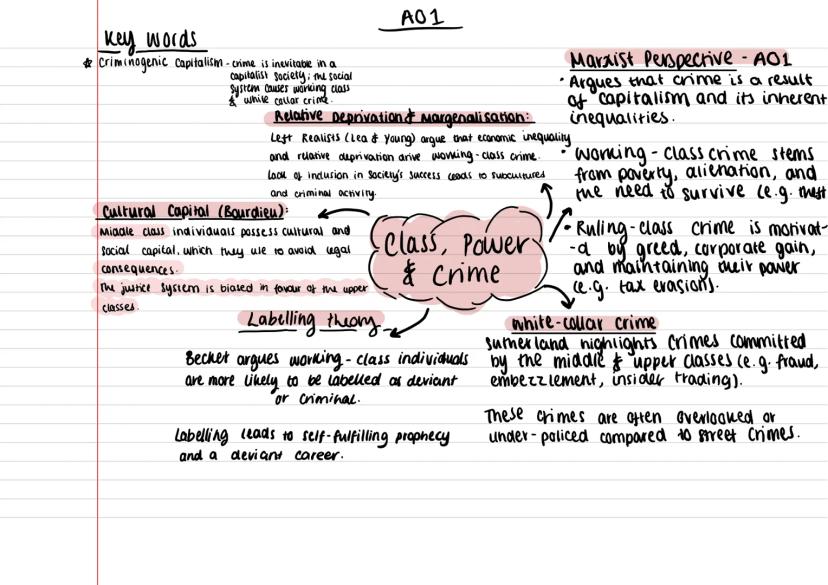 AO1
Key Words
* Criminogenic Capitalism - crime is inevitable in a
capitalist society; the social
system causes working class
& white collar crime.
Relative Deprivation & Marginalisation:
Left Realists (Lea & Young) argue that economic inequality
and relative deprivation drive working-class crime.
Lack of inclusion in society's success leads to subcultures
and criminal activity.
Cultural Capital (Bourdieu):
Middle class individuals possess cultural and
social capital, which they use to avoid legal
consequences.
The justice system is biased in favour of the upper
classes.
Class, Power
& Crime
Labelling theory
Becker argues working-class individuals
are more likely to be labelled as deviant
or criminal.
Labelling leads to self-fulfilling prophecy
and a deviant career.
Marxist Perspective - AO1
• Argues that crime is a result
of capitalism and its inherent
inequalities.
• Working-class crime stems
from poverty, alienation, and
the need to survive (e.g. theft
• Ruling-class crime is motivat-
-d by greed, corporate gain,
and maintaining their power
(e.g. tax evasion).
White-collar crime
Sutherland highlights crimes committed
by the middle & upper classes (e.g. fraud,
embezzlement, insider trading).
These crimes are often overlooked or
under-policed compared to street crimes.